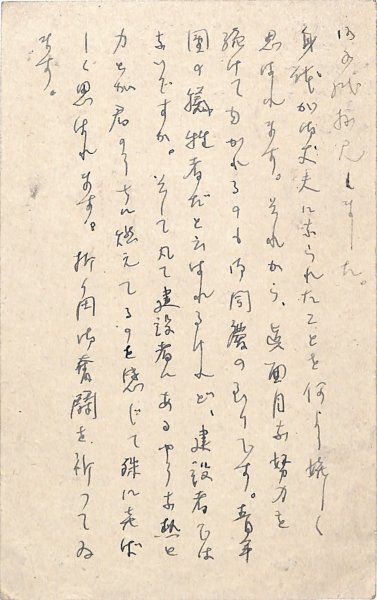 御手紙拝見しました。
身体が御丈夫になられたことを何より嬉しく
思はれます。それから、真面目な努力を
続けてゐられるのも御同慶の至りです。青年
団の犠牲者だと云はれるけれど、建設者では
ないですか。そして凡て建設者にあるやうな熱と
力とが君のうちに燃えてるのを感じて殊に喜ば
しく思はれます。折角御奮闘を祈つてゐ
ます。